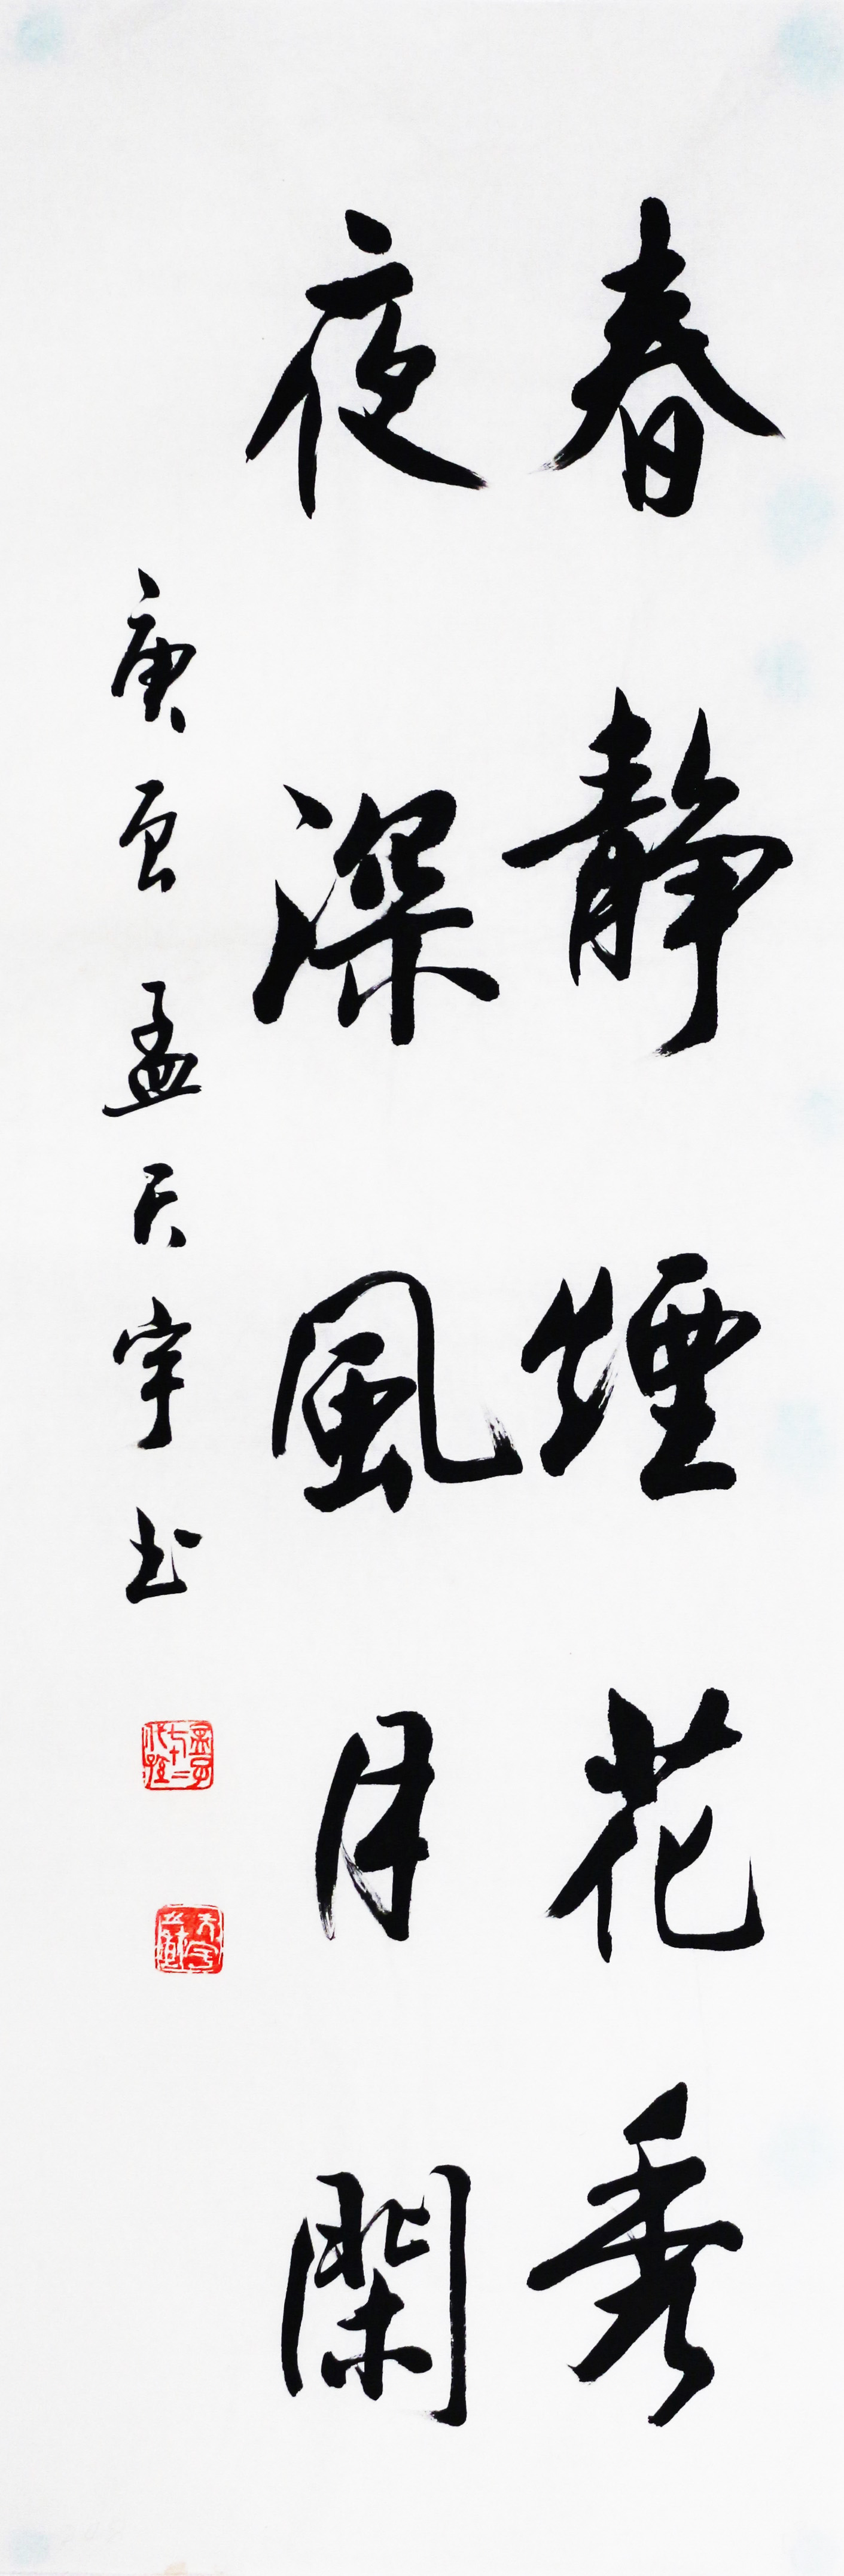 春静煙花秀
夜深風月閑
庚寅孟天宇书